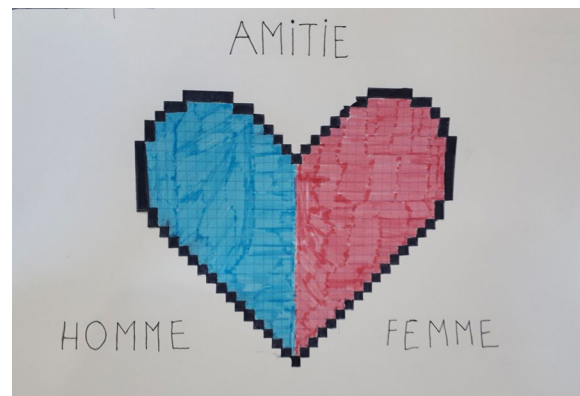 AMiTiE
HOMME
FEMME